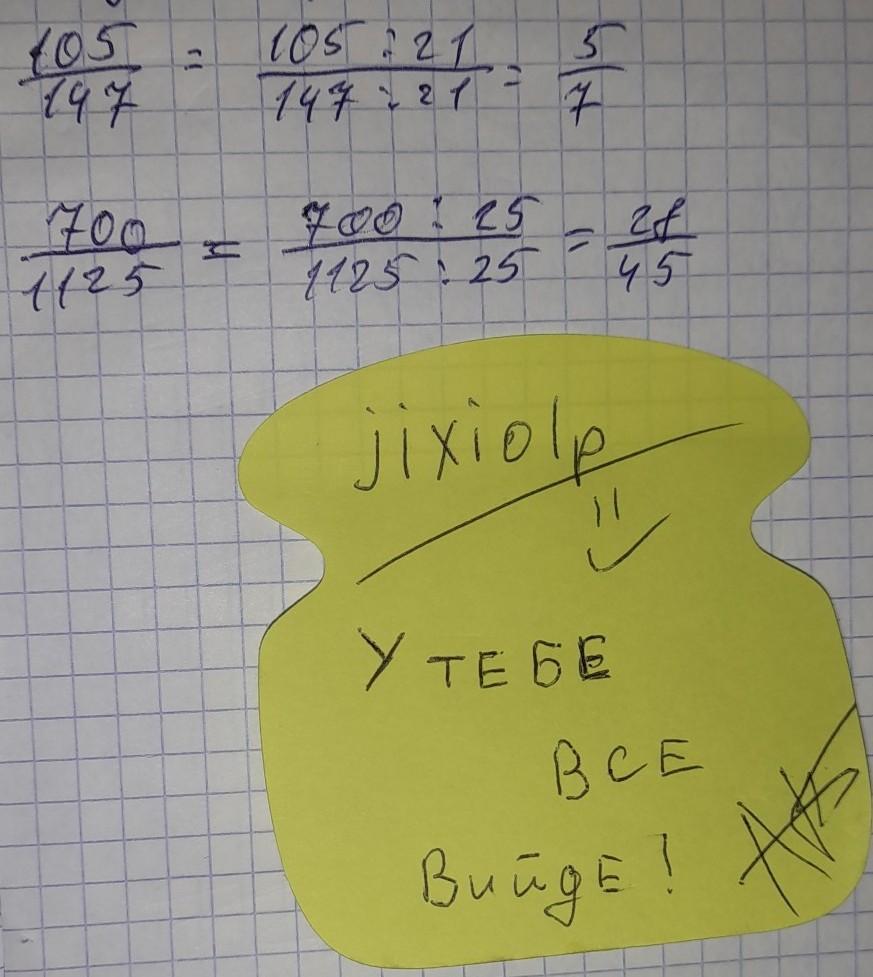 105/147 = 105 : 21/147 : 21 = 5/7
700/1125 = 700 : 25/1125 : 25 = 28/45
jixiolp
У ТЕБЕ
ВСЕ
ВийдЕ!